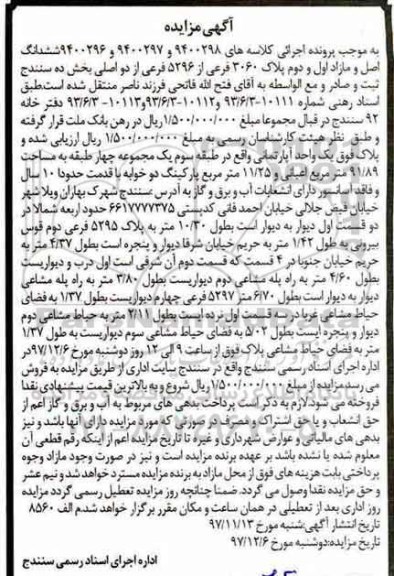 آگهی مزایده
به موجب پرونده اجرائی کلاسه های ۹۴۰۰۲۹۸ و ۹۴۰۰۲۹۷ و ۹۴۰۰۲۹۶ششدانگ
اصل و مازاد اول و دوم پلاک ۳۰۶۰ فرعی از ۵۲۹۶ فرعی از دو اصلی بخش ده سنندج
ثبت و صادر و مع الواسطه به آقای فتح الله فاتحی فرزند ناصر منتقل شده است.طبق
اسناد رهنی شماره ۱۰۱۱۱-۹۳/۶/۳ و۱۰۱۱۲-۹۳/۶/۳و ۱۰۱۱۳-۹۳/۶/۳ دفتر خانه
۹۲ سنندج در قبال مجموعا مبلغ ۱/۵۰۰/۰۰۰/۰۰۰ریال در رهن بانک ملت قرار گرفته
و طبق نظر هیئت کارشناسان رسمی به مبلغ ۱/۵۰۰/۰۰۰/۰۰۰ ریال ارزیابی شده و
پلاک فوق یک واحد آپارتمانی واقع در طبقه سوم یک مجموعه چهار طبقه به مساحت
۹۱/۸۹ متر مربع اعیانی و ۱۱/۲۵ متر مربع پارکینگ دو خوابه با قدمت حدودا ۱۰ سال
و فاقد آسانسور دارای انشعابات آب و برق و گاز به آدرس :سنندج شهرک بهاران ویلا شهر
خیابان فیض جلالی خیابان احمد فانی کدپستی ۶۶۱۷۷۷۷۳۷۵ حدود اربعه شمالا در
دو قسمت اول دیوار به دیوار است بطول ۱۰/۳۰ متر به پلاک ۵۲۹۵ فرعی دوم قوس
بیرونی به طول ۱/۴۲ متر به حریم خیابان شرقا دیوار و پنجره است بطول ۴/۳۷ متر به
حریم خیابان جنوبا در ۴ قسمت که قسمت دوم آن شرقی است اول درب و دیواریست
بطول ۴/۶۰ متر به راه پله مشاعی دوم دیواریست بطول ۳/۸۰ متر به راه پله مشاعی
دیوار به دیوار است بطول ۶/۷۰ متر ۵۲۹۷ فرعی چهارم دیواریست بطول ۱/۳۷ به فضای
حیاط مشاعی غربا در سه قسمت اول نرده ایست بطول ۲/۱۱ متر به حیاط مشاعی دوم
دیوار و پنجره ایست بطول ۵/۰۲ به فضای حیاط مشاعی سوم دیواریست به طول ۱/۳۷
متر به فضای حیاط مشاعی پلاک فوق از ساعت ۹ الی ۱۲ روز دوشنبه مورخ ۹۷/۱۲/۶در
اداره اجرای اسناد رسمی سنندج واقع در سنندج سایت اداری از طریق مزایده به فروش
می رسد.مزایده از مبلغ ۱/۵۰۰/۰۰۰/۰۰۰ ریال شروع و به بالاترین قیمت پیشنهادی نقدا
فروخته می شود.لازم به ذکر است پرداخت بدهی های مربوط به آب و برق و گاز اعم از
حق انشعاب و یا حق اشتراک و مصرف در صورتی که مورد مزایده دارای آنها باشد و نیز
بدهی های مالیاتی و عوارض شهرداری و غیره تا تاریخ مزایده اعم از اینکه رقم قطعی آن
معلوم شده یا نشده باشد بر عهده برنده مزایده است و نیز در صورت وجود مازاد وجوه
پرداختی بابت هزینه های فوق از محل مازاد به برنده مزایده مسترد خواهد شد و نیم عشر
و حق مزایده نقدا وصول می گردد. ضمنا چنانچه روز مزایده تعطیل رسمی گردد مزایده
روز اداری بعد از تعطیلی در همان ساعت و مکان مقرر برگزار خواهد شد.م الف ۸۵۶۰
تاریخ انتشار آگهی:شنبه مورخ ۹۷/۱۱/۱۳
تاریخ مزایده:دوشنبه مورخ ۹۷/۱۲/۶
اداره اجرای اسناد رسمی سنندج